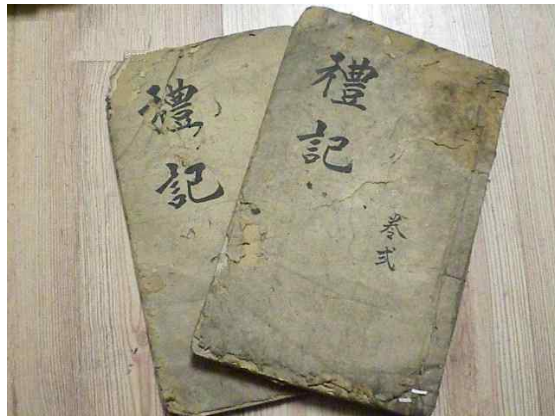 禮記
禮記
卷弍